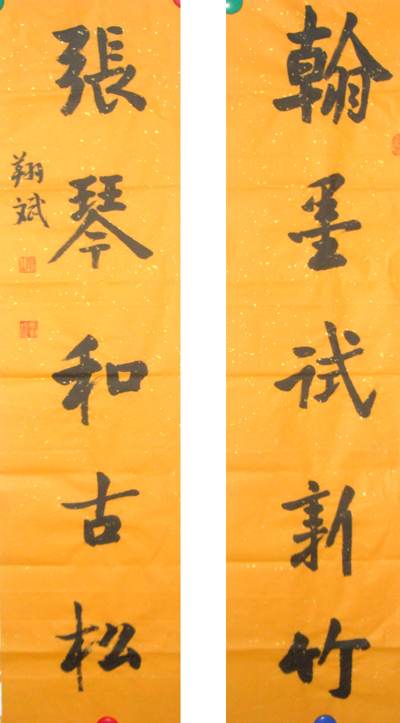 翰墨试新竹
張琴和古松
翔斌